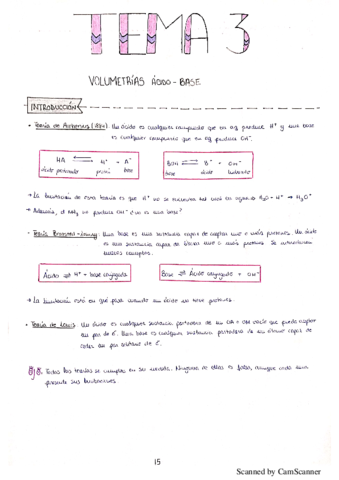 TEMA 3
VOLUMETRÍAS ÁCIDO - BASE
INTRODUCCIÓN
• Teoría de Arrhenius (1884): Un ácido es cualquier compuesto que en aq produce H⁺ y una base
es cualquier compuesto que en aq produce OH⁻.
HA ⇌ H⁺ + A⁻
ácido protón base
BOH ⇌ B⁺ + OH⁻
base ácido
→ La limitación de esta teoría es que H⁺ no se encuentra tal cual en H₂O + H⁺ → H₃O⁺
→ Además, el NH₃ no produce OH⁻ y es una base!
• Teoría Brønsted-Lowry: Una base es una sustancia capaz de aceptar uno o más protones. Un ácido
es una sustancia capaz de ceder uno o más protones. Se introducen
nuevos conceptos.
Ácido ⇌ H⁺ + base conjugada
Base ⇌ Ácido conjugado + OH⁻
→ La limitación está en qué pasa cuando un ácido no tiene protones.
• Teoría de Lewis: Un ácido es cualquier sustancia portadora de un que pueda captar
un par de e⁻. Una base es cualquier sustancia portadora de un átomo capaz de
ceder un par de e⁻.
Todas las teorías se cumplen en su medida. Ninguna de ellas es falsa, aunque cada una
presente sus limitaciones.
15
Scanned by CamScanner